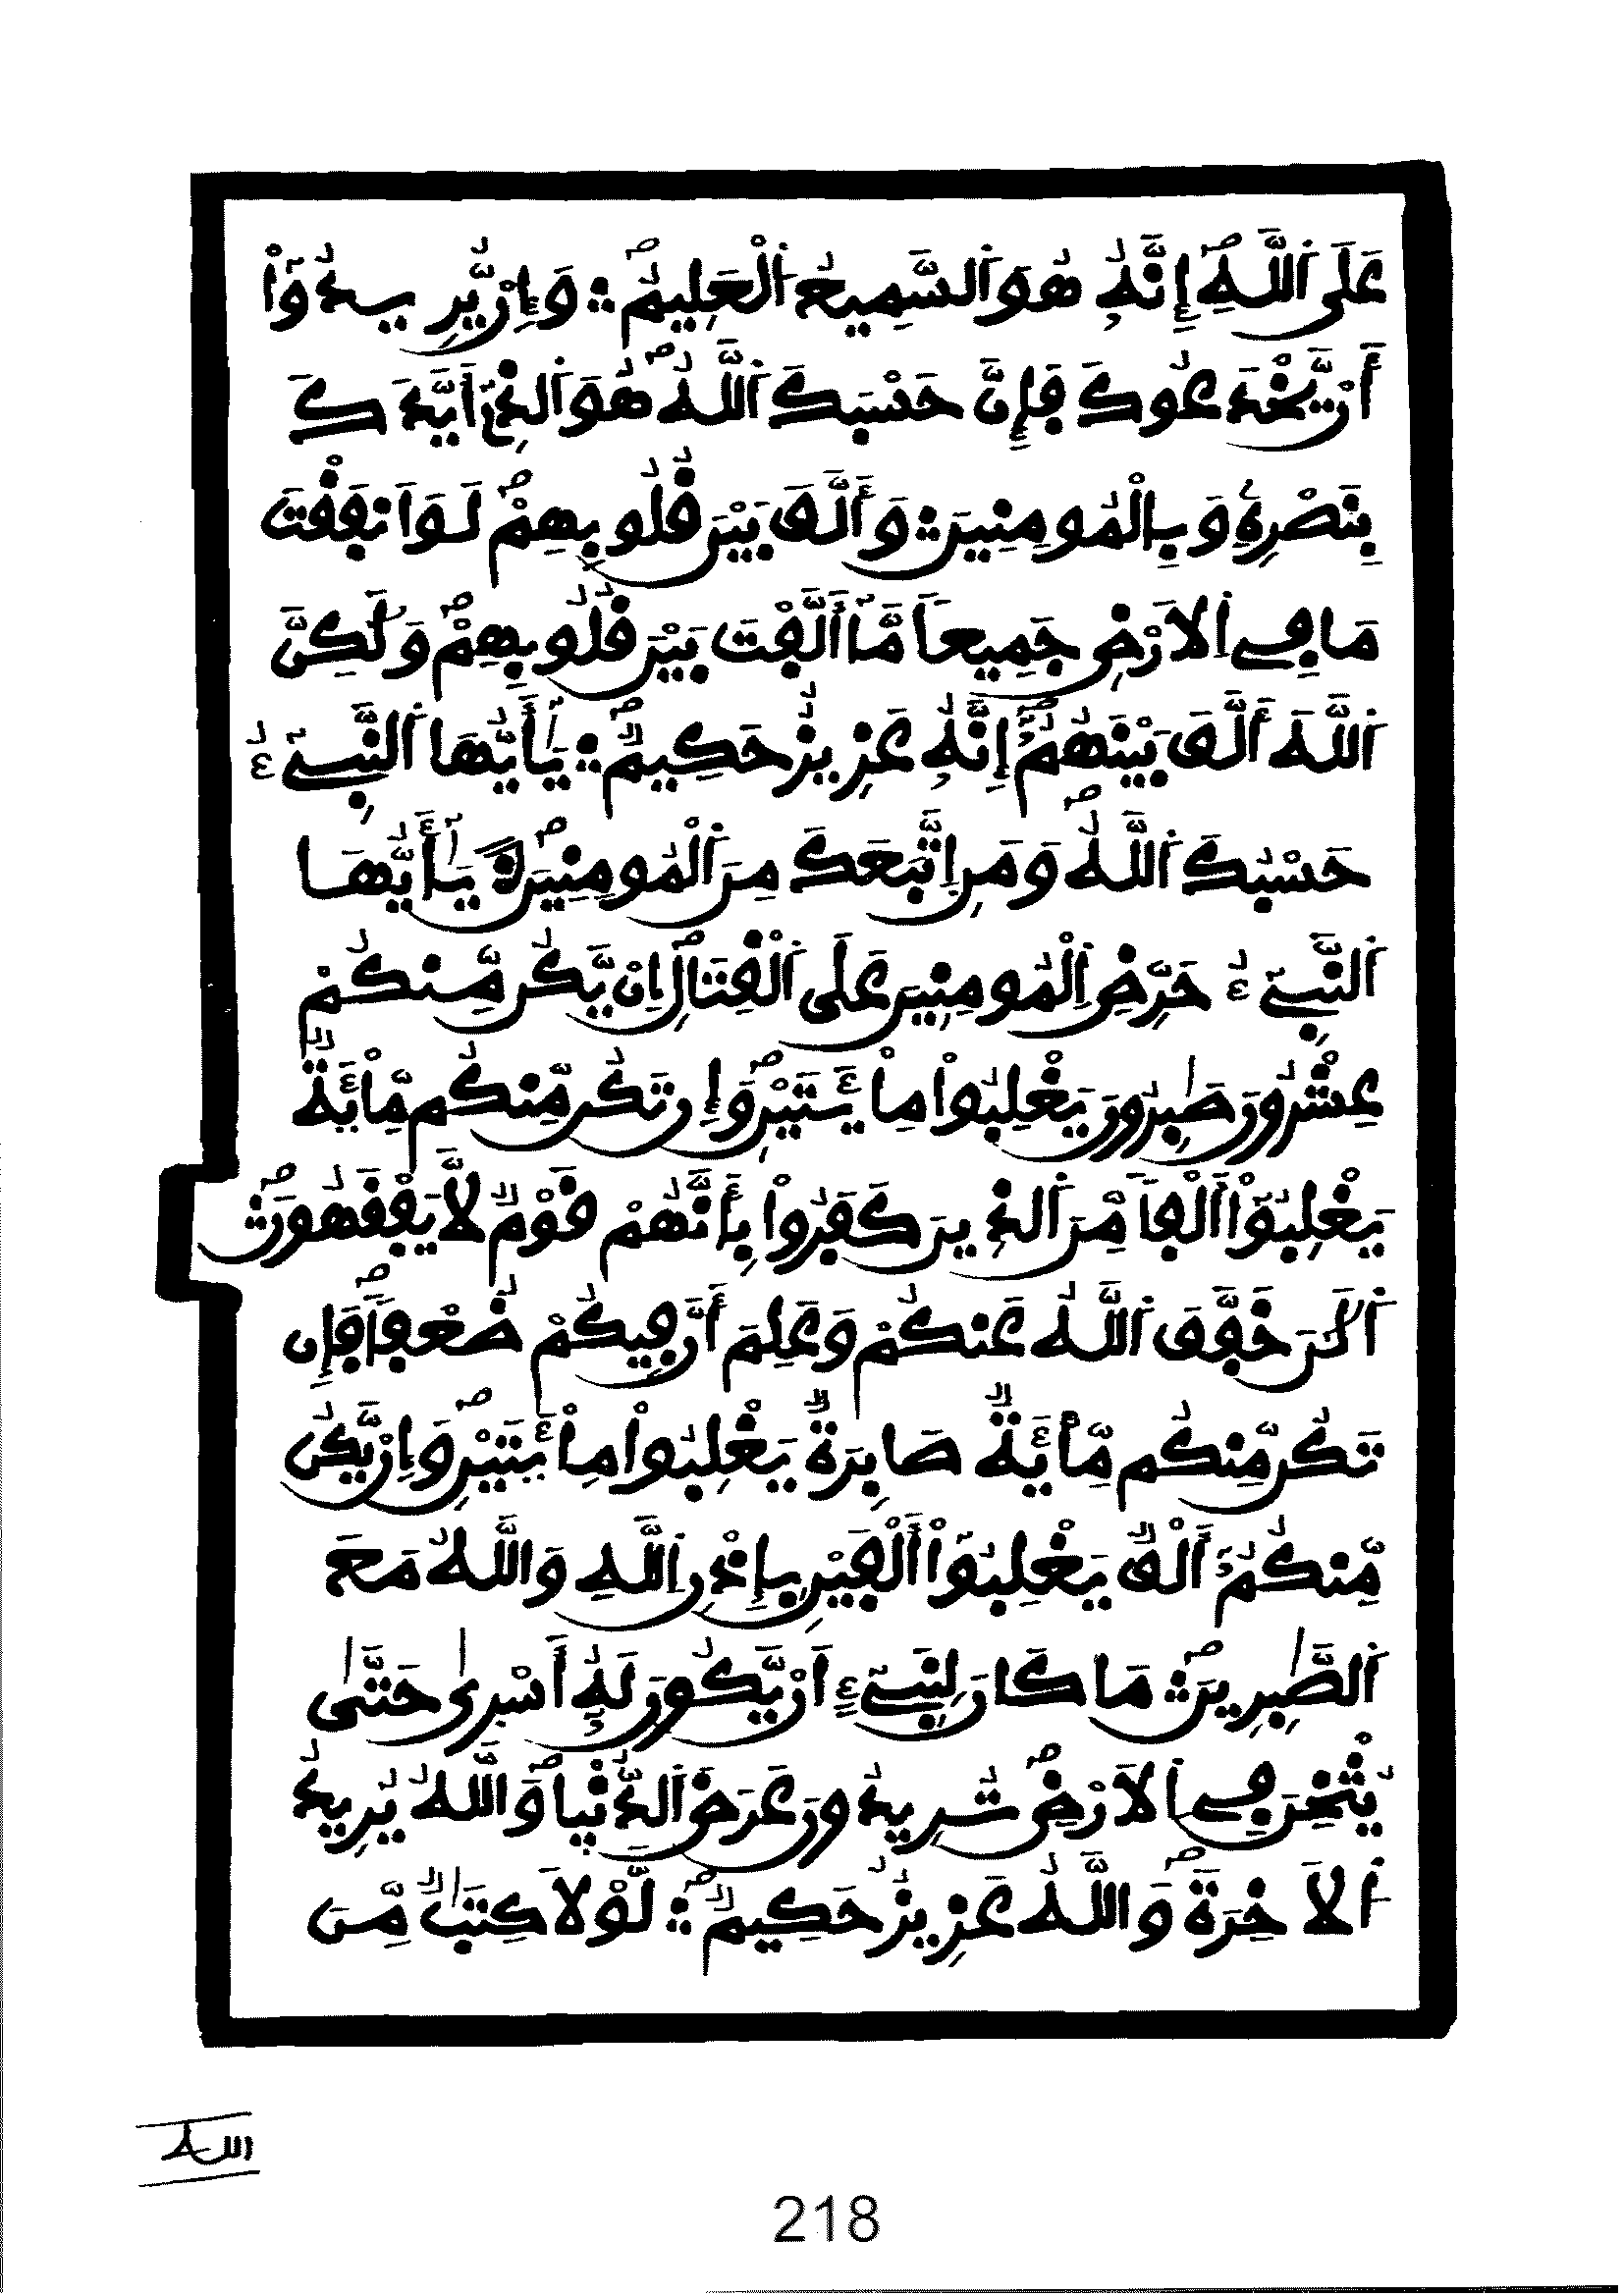 عَلَى اَ۬للَّهِۖ إِنَّهُۥ هُوَ اَ۬لسَّمِيعُ اُ۬لْعَلِيمُۖ وَإِنْ يُّرِيدُوٓاْ
أَنْ يَّخْدَعُوكَ فَإِنَّ حَسْبَكَ اَ۬للَّهُۖ هُوَ اَ۬لذِےٓ أَيَّدَكَ
بِنَصْرِهِۦ وَبِالْمُومِنِينَ وَأَلَّفَ بَيْنَ قُلُوبِهِمْۖ لَوَ اَنفَقْتَ
مَا فِے اِ۬لَارْضِ جَمِيعاٗ مَّآ أَلَّفْتَ بَيْنَ قُلُوبِهِمْۖ وَلَٰكِنَّ
اَ۬للَّهَ أَلَّفَ بَيْنَهُمُۥٓۖ إِنَّهُۥ عَزِيزٌ حَكِيمٌۖ يَٰٓأَيُّهَا اَ۬لنَّبِےٓءُ
حَسْبُكَ اَ۬للَّهُۖ وَمَنِ اِ۪تَّبَعَكَ مِنَ اَ۬لْمُومِنِينَۖ يَٰٓأَيُّهَا
اَ۬لنَّبِےٓءُ حَرِّضِ اِ۬لْمُومِنِينَ عَلَى اَ۬لْقِتَالِۖ إِنْ يَّكُن مِّنكُمْ
عِشْرُونَ صَٰبِرُونَ يَغْلِبُواْ مِاْئَتَيْنِۖ وَإِن تَكُن مِّنكُم مِّاْئَةٌ
يَغْلِبُوٓاْ أَلْفاٗ مِّنَ اَ۬لذِينَ كَفَرُواْ بِأَنَّهُمْ قَوْمٌ لَّا يَفْقَهُونَۖ
اَ۬لَٰنَ خَفَّفَ اَ۬للَّهُ عَنكُمْ وَعَلِمَ أَنَّ فِيكُمْ ضُعْفاٗۖ فَإِن
تَكُن مِّنكُم مِّاْئَةٌ صَابِرَةٌ يَغْلِبُواْ مِاْئَتَيْنِۖ وَإِنْ يَّكُن
مِّنكُمُۥٓ أَلْفٌ يَغْلِبُوٓاْ أَلْفَيْنِ بِإِذْنِ اِ۬للَّهِ وَاللَّهُ مَعَ
اَ۬لصَّٰبِرِينَۖ مَا كَانَ لِنَبِےٓءٍ اَنْ يَّكُونَ لَهُۥٓ أَسْر۪ىٰ حَتَّىٰ
يُثْخِنَ فِے اِ۬لَارْضِۖ تُرِيدُونَ عَرَضَ اَ۬لدُّنْيٖاۖ وَاللَّهُ يُرِيدُ
اُ۬لَاخِرَةَۖ وَاللَّهُ عَزِيزٌ حَكِيمٌۖ لَّوْلَا كِتَٰبٌ مِّنَ
الله
218